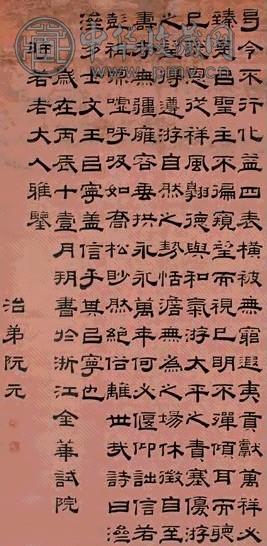 中華收藏網
曷令不行化益四表橫被無窮遐夷貢獻萬祥必
臻是以聖主不徧窺望而視已明不殫傾耳而聽
已聰恩從祥風翱德與和氣游太平之責塞優游
之望得遵游自然之勢恬澹無為之場休徵自至
壽考無疆雍容垂拱永永萬年何必偃仰詘信若
彭祖呴噓呼吸如喬松眇然絕俗離世哉詩曰濟
濟多士文王以寧蓋信乎其以寧也
歲在丙辰十壹月朔書於浙江金華試院
老大人雅鑒
治弟阮元